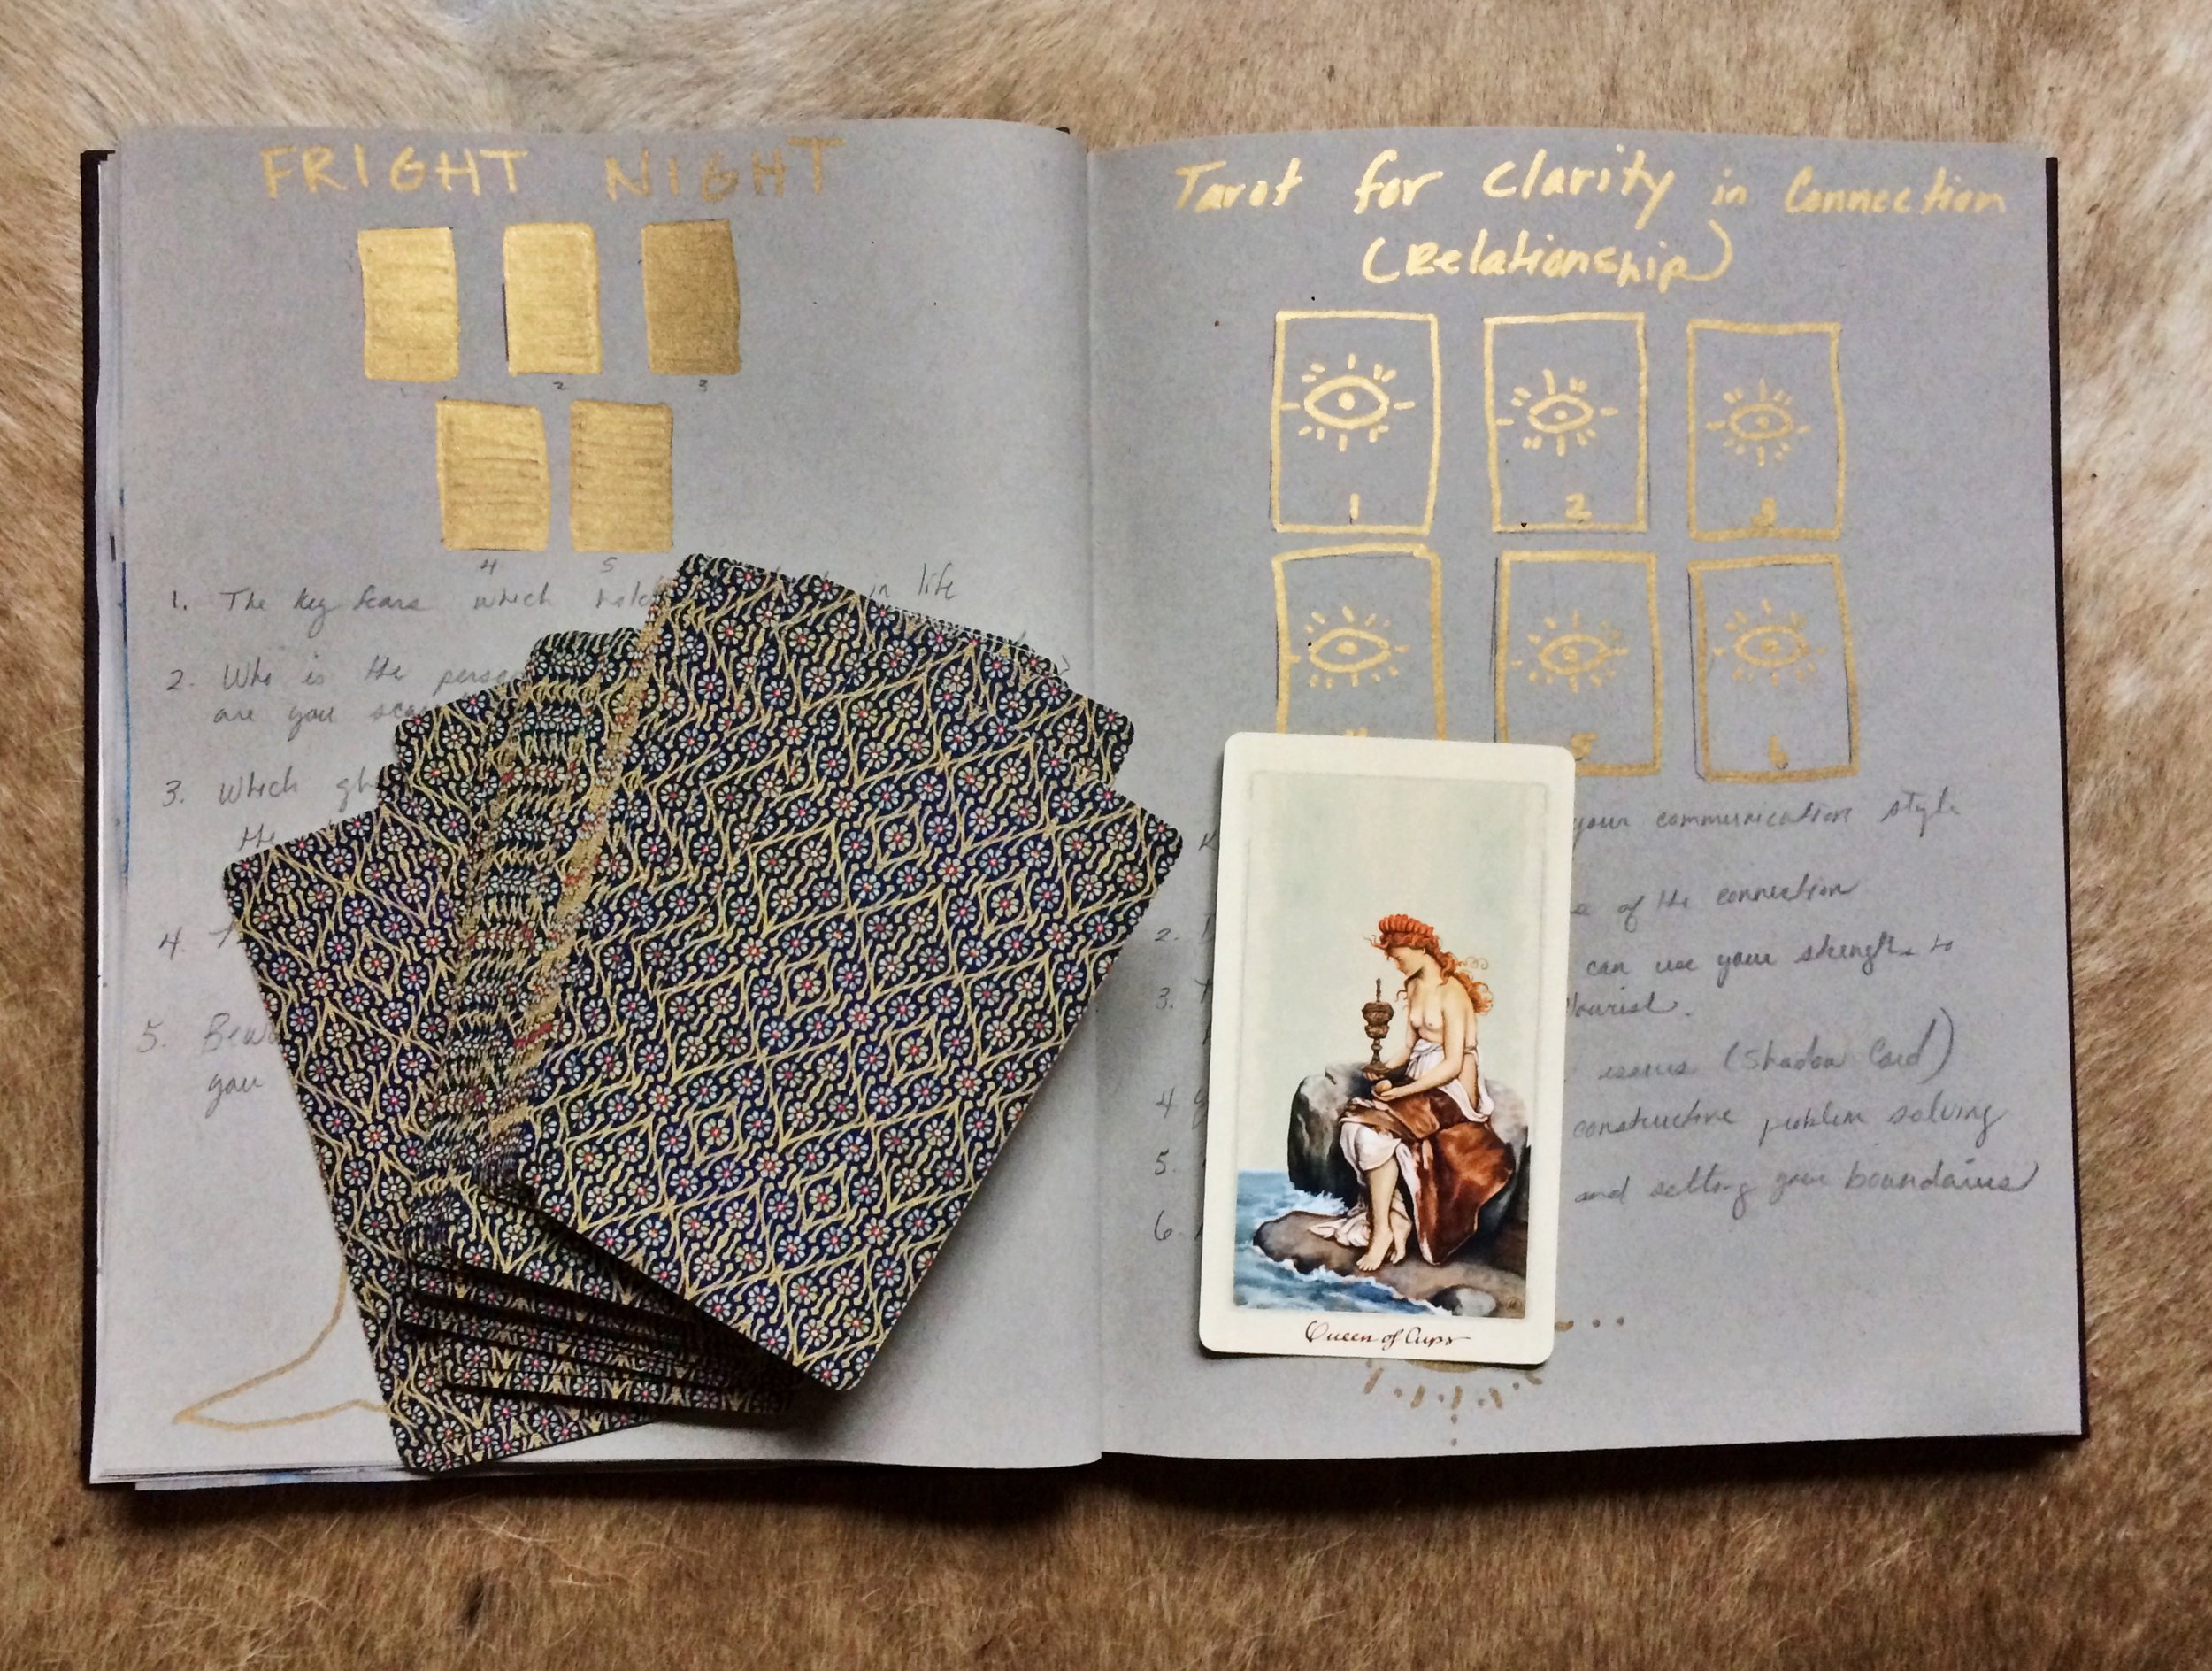 FRIGHT NIGHT
1
2
3
4
5
1. The key fears which hold in life
2. Who is the perso
are you sca
3. Which gh
the
4.
5. Bewa
you
Tarot for Clarity in Connection
(Relationship)
1
2
3
4
5
6
your communication style
2. of the connection
3. can use your strengths to
flourish.
4 issues (Shadow Card)
5. constructive problem solving
6 and setting your boundaries
Queen of Cups